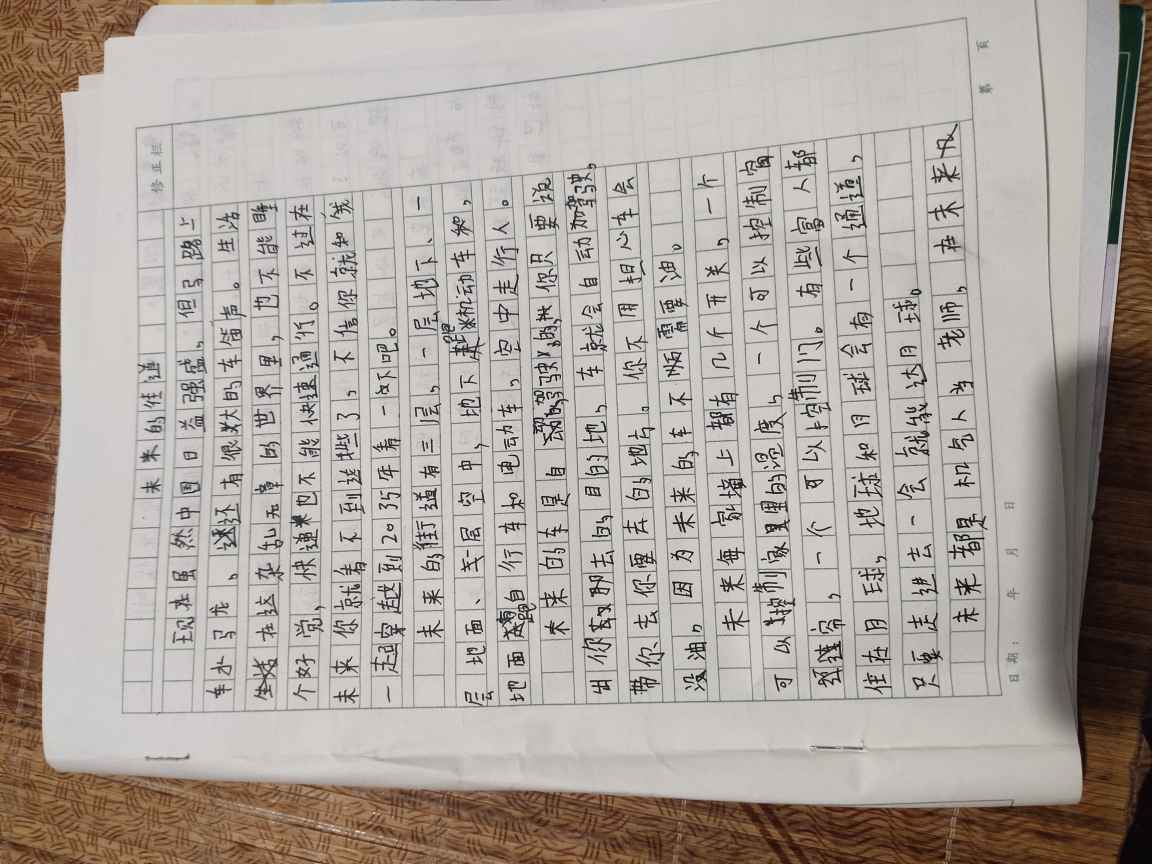 修正栏
未来的街道
现在虽然中国日益强盛,但马路上
车水马龙、还有很大的车笛声。生活
在这杂乱无章的世界里,也不能睡
个好觉,快递也不能快速通行。不过在
未来你就看不到这些了,不信你就和我
一起穿越到2035年看一下吧。
未来的街道有三层,一层地下、一
层地面、一层空中,地下跑机动车和,
地面跑自行车和电动车,空中走行人。
未来的车是自动驾驶的,你只要说
出你要去的目的地,车就会自动驾驶,
带你去你要去的地方。你不用担心车会
没油,因为未来的车不烦需要油。
未来每家墙上都有几个开关,一个
可以控制家里的温度,一个可以控制窗
,一个可以控制门。有些富人都
住在月球,地球和月球会有一个通道,
只要走进去一会就能达月球。
未来都是机气人当老师,在未来双
日期: 年 月 日
第 页